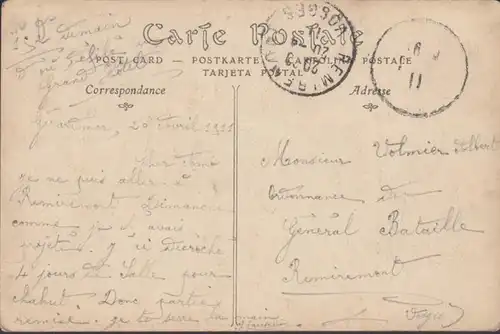 Carte Postale
POST CARD — POSTKARTE — CARTOLINA POSTALE
TARJETA POSTAL
Correspondance
Adresse
REMIREMONT VOSGES
11
demain
Grand
Gerardmer, 20 Avril 1911
Cher
Je ne puis aller à
Remiremont Dimanche
comme je l'avais
projeté. J'ai décroché
4 jours de Salle pour
chahut. Donc partie
remise. Je te serre la main
Monsieur Volmier Albert
Ordonnance du
Général Bataille
Remiremont
Vosges